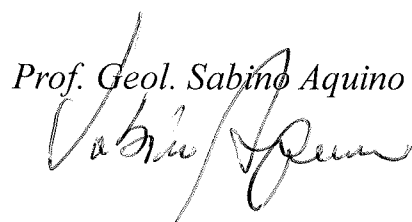 Prof. Geol. Sabino Aquino
Sabino Aquino